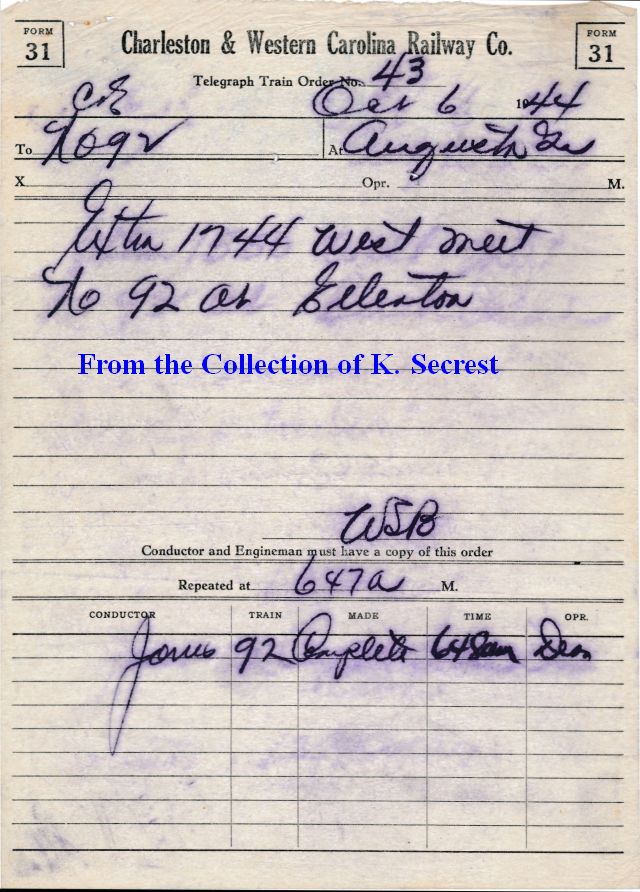 FORM 31
Charleston & Western Carolina Railway Co.
FORM 31
Telegraph Train Order No. 43
C&E Oct 6 1944
To No 92 At Augusta Ga
X Opr. M.
Extra 1744 West meet
No 92 at Ellenton
From the Collection of K. Secrest
WSB
Conductor and Engineman must have a copy of this order
Repeated at 647a M.
CONDUCTOR TRAIN MADE TIME OPR.
Jones 92 Complete 648am